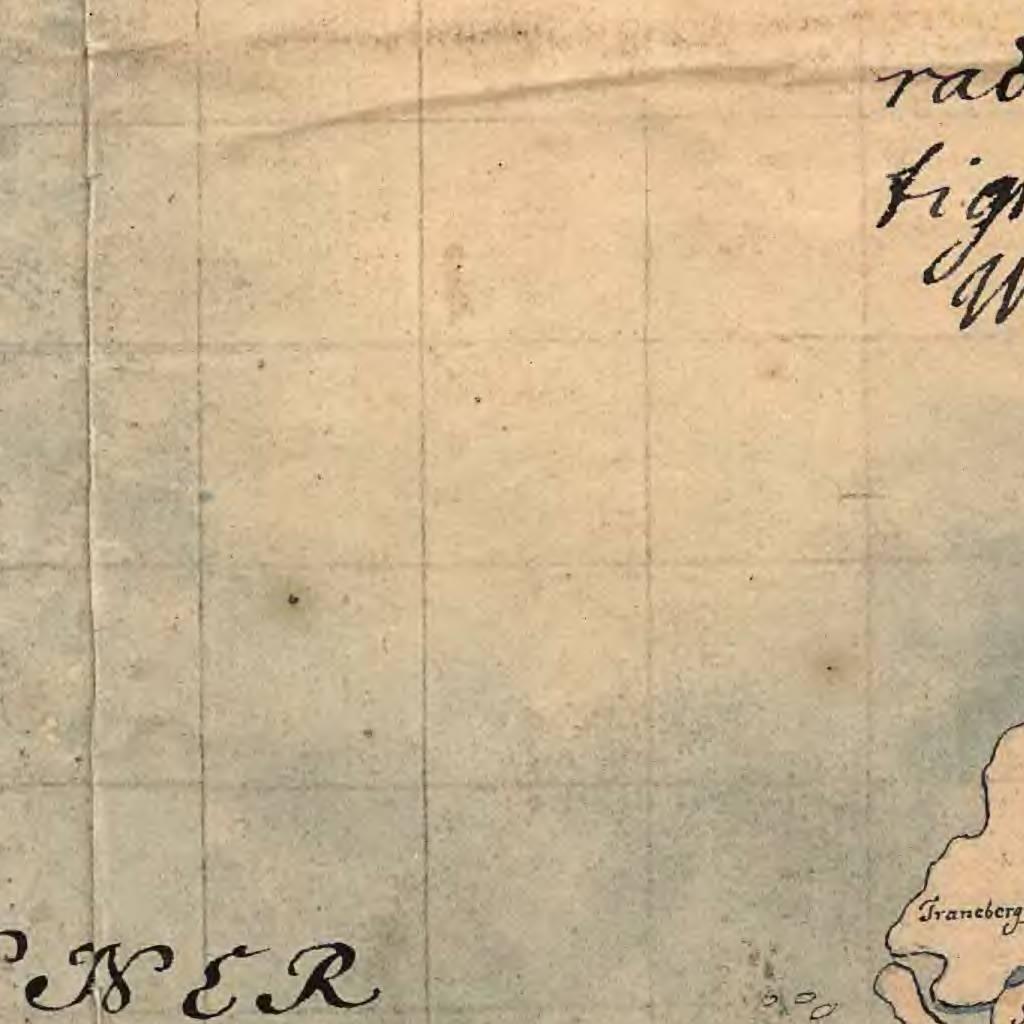 rad
tig
W
Traneberg
NER